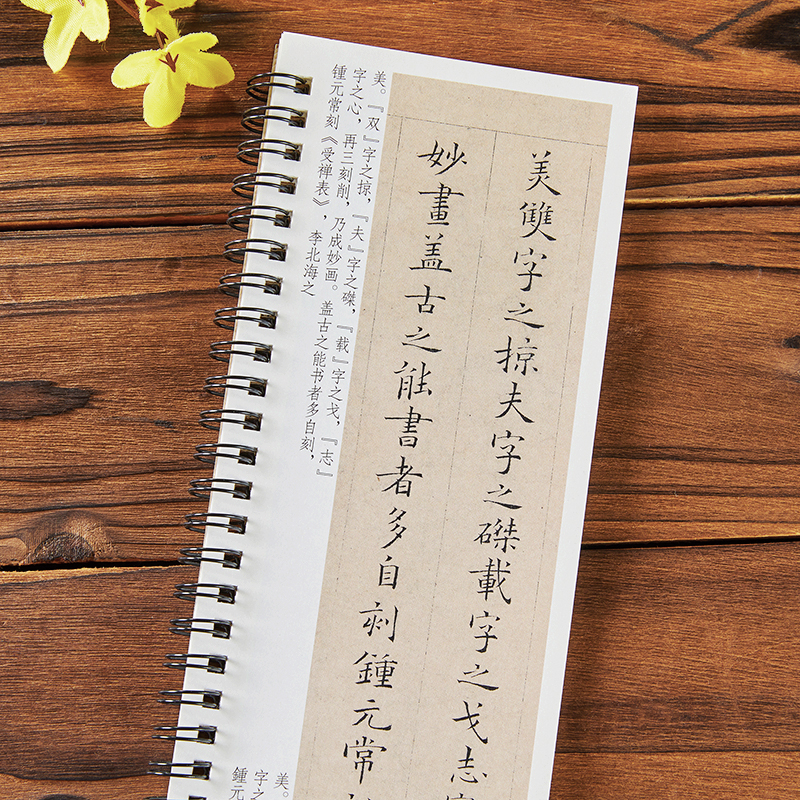 美雙字之掠夫字之磔載字之戈志
妙畫盖古之能書者多自刻鍾元常
美。『双』字之掠，『夫』字之磔，『载』字之戈，『志』
字之心，再三刻削，乃成妙画。盖古之能书者多自刻，
锺元常刻《受禅表》，李北海之
美。
字之
锺元